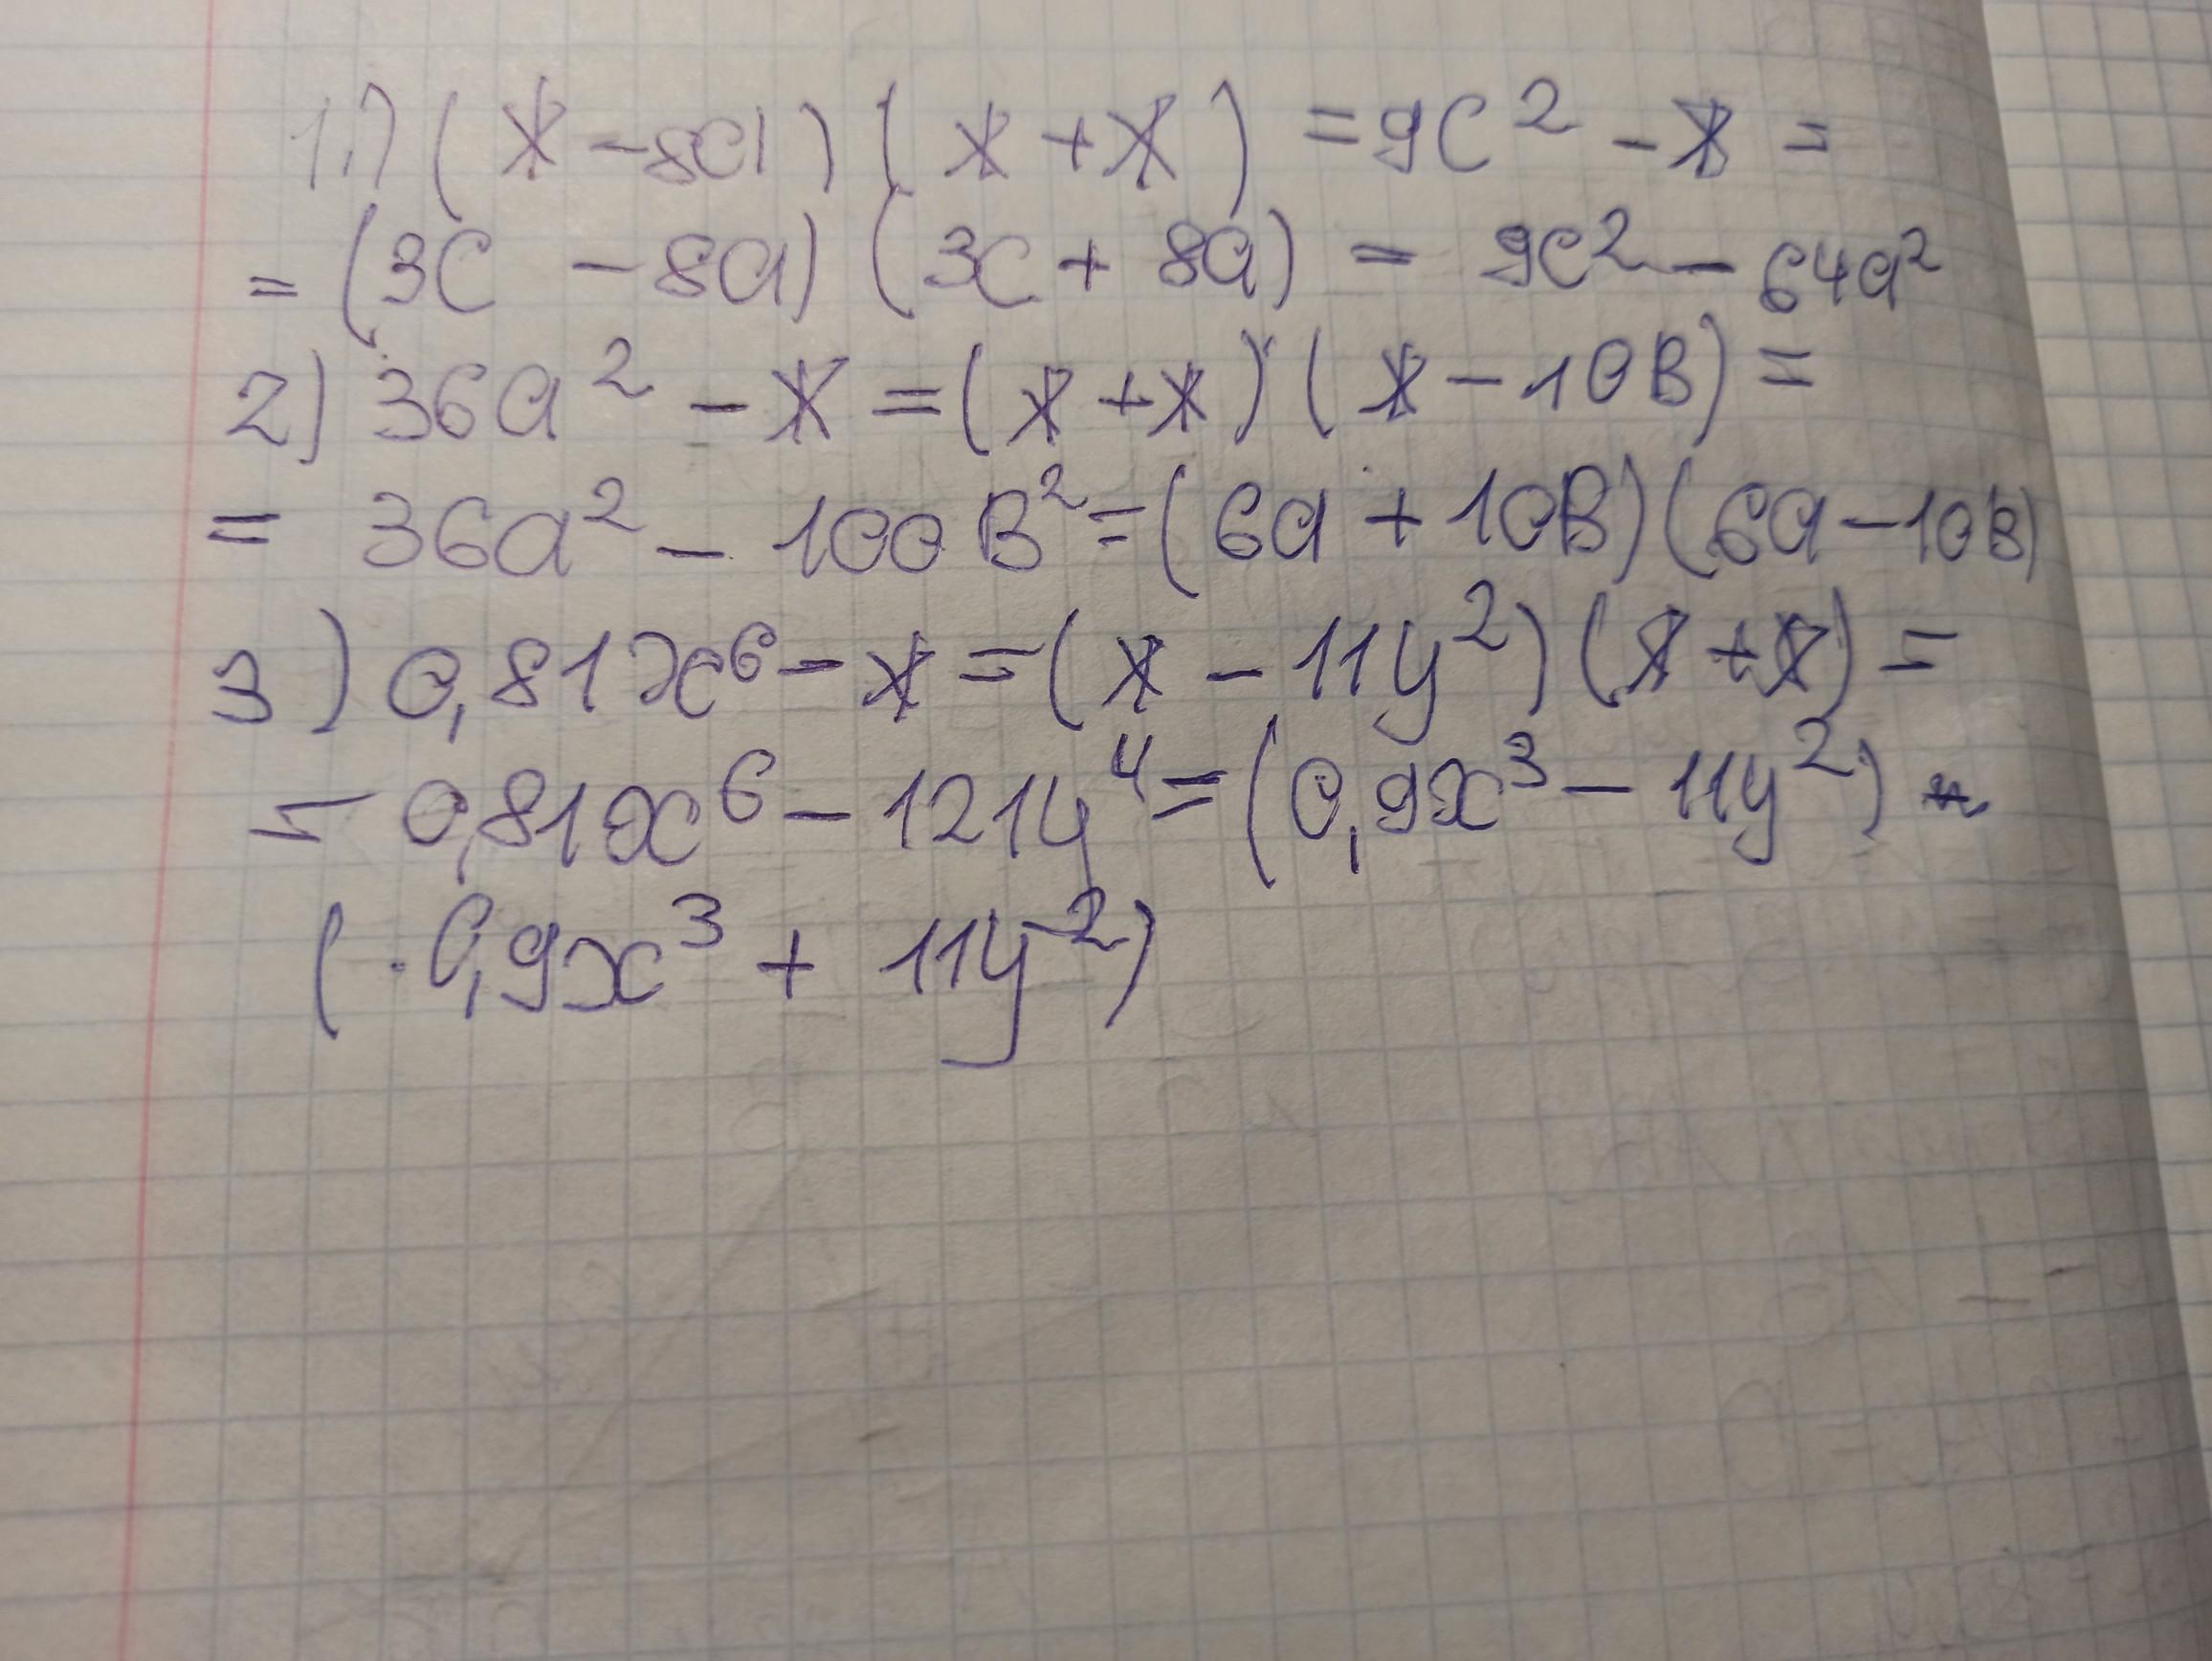 1.) (* - 8a) (* + *) = 9c² - * =
= (3c - 8a) (3c + 8a) = 9c² - 64a²
2) 36a² - * = (* + *) (* - 10в) =
= 36a² - 100в² = (6a + 10в) (6a - 10в)
3) 0,81x⁶ - * = (* - 11y²) (* + *) =
= 0,81x⁶ - 121y⁴ = (0,9x³ - 11y²) *
(0,9x³ + 11y²)